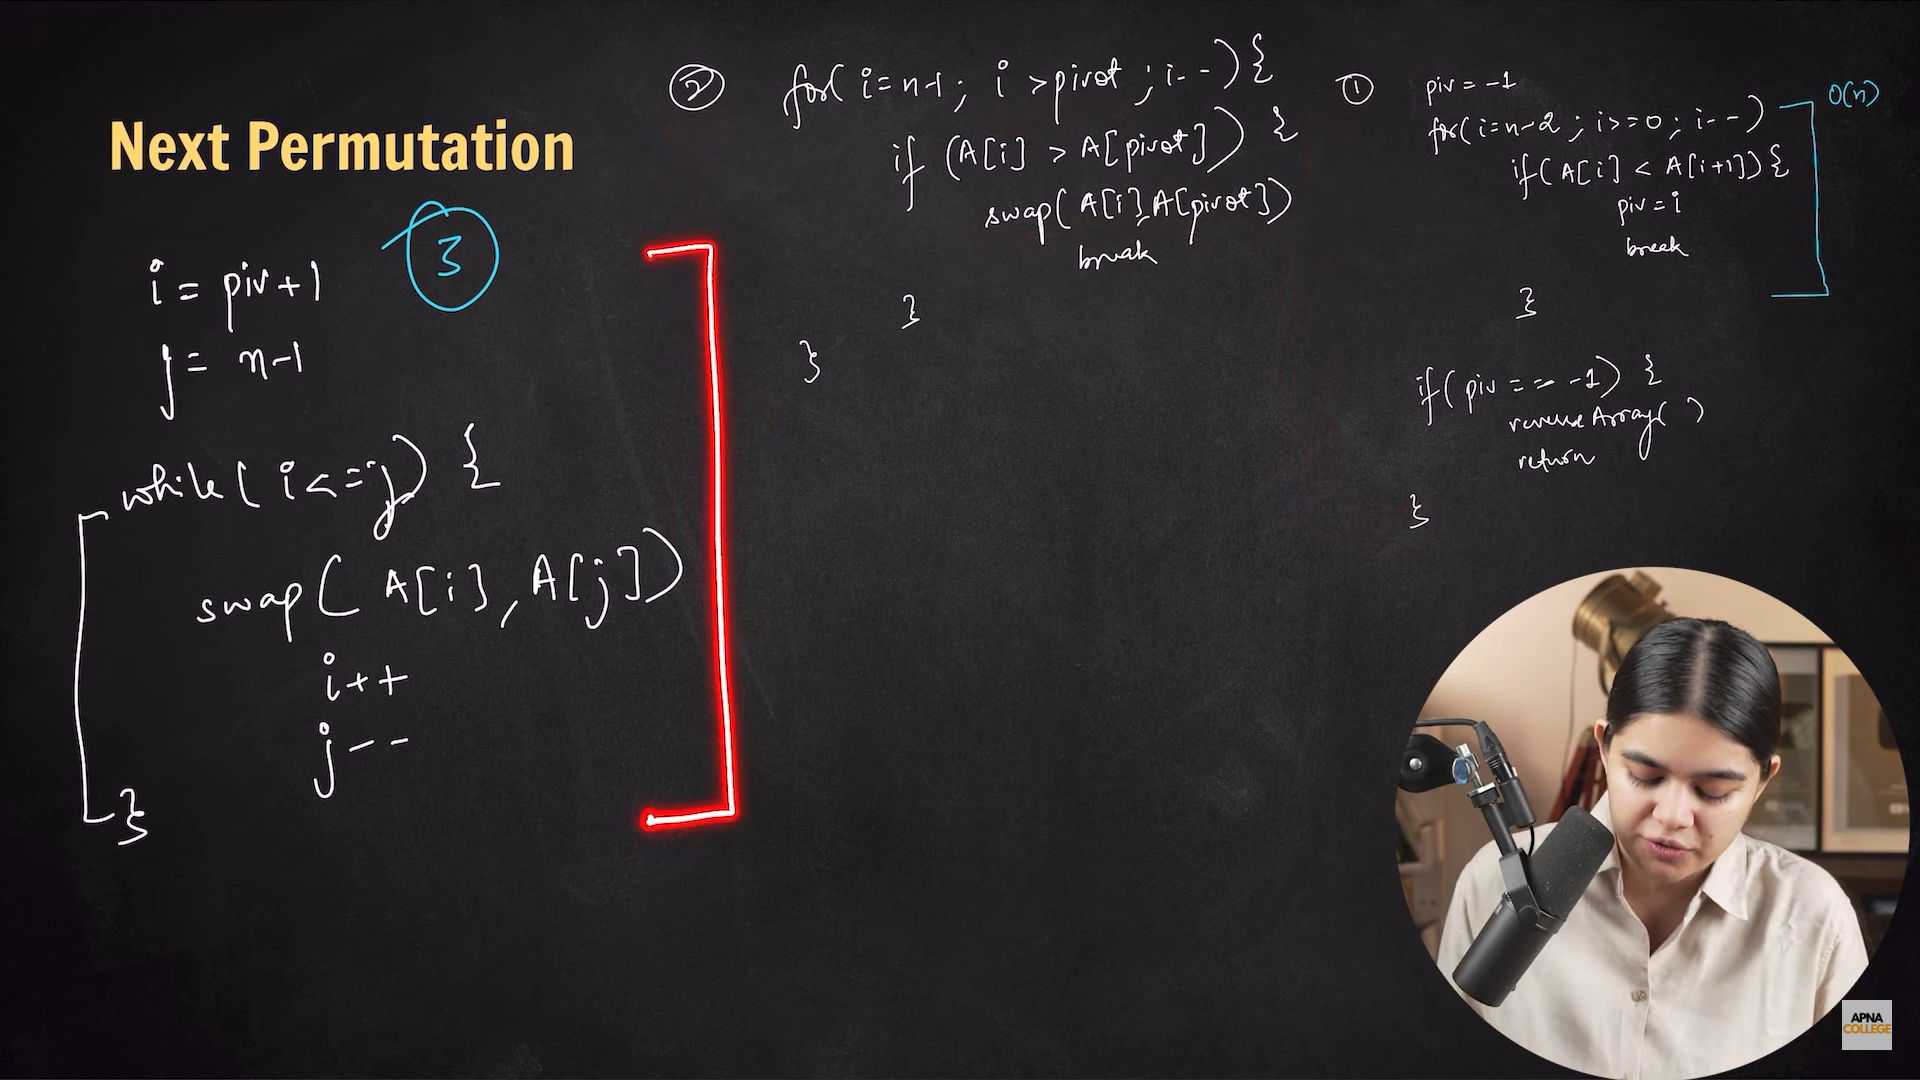 Next Permutation
3
i = piv+1
j = n-1
while( i<=j) {
swap( A[i], A[j])
i++
j--
}
2
for( i=n-1; i >pivot ; i--) {
if (A[i] > A[pivot]) {
swap( A[i],A[pivot])
break
}
}
1
piv = -1
for( i=n-2 ; i>=0 ; i--)
if( A[i] < A[i+1]) {
piv = i
break
}
O(n)
if( piv == -1) {
reverseArray( )
return
}
APNA
COLLEGE